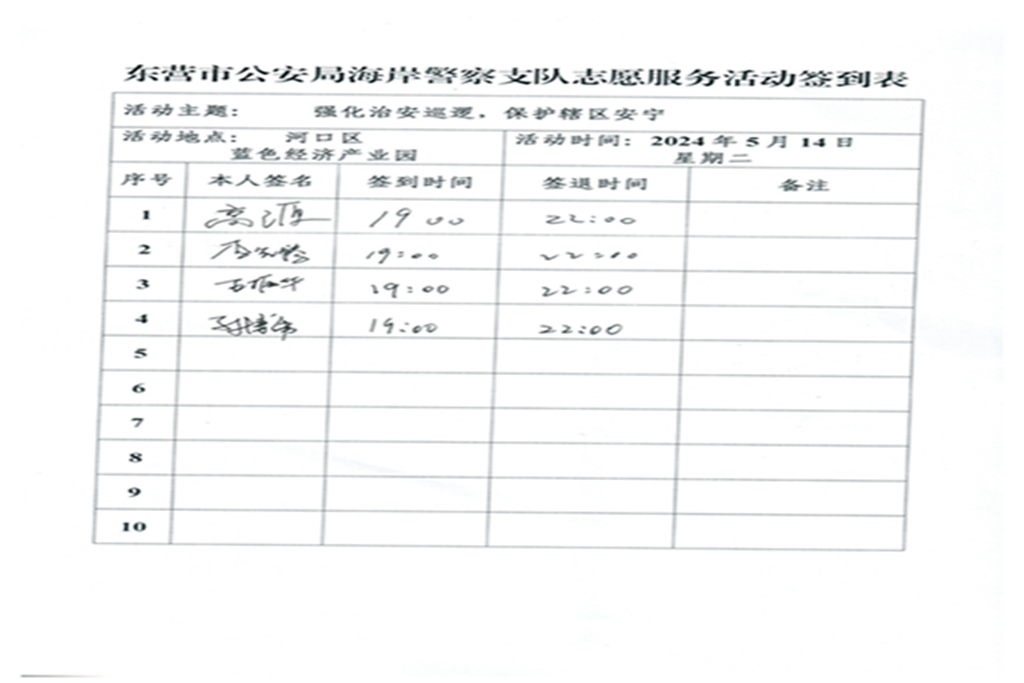 东营市公安局海岸警察支队志愿服务活动签到表
活动主题： 强化治安巡逻，保护辖区安宁
活动地点： 河口区
蓝色经济产业园
活动时间：2024 年 5 月 14 日
星期二
序号 本人签名 签到时间 签退时间 备注
1 19 00 22:00
2 19:00 22:00
3 19:00 22:00
4 19:00 22:00
5
6
7
8
9
10